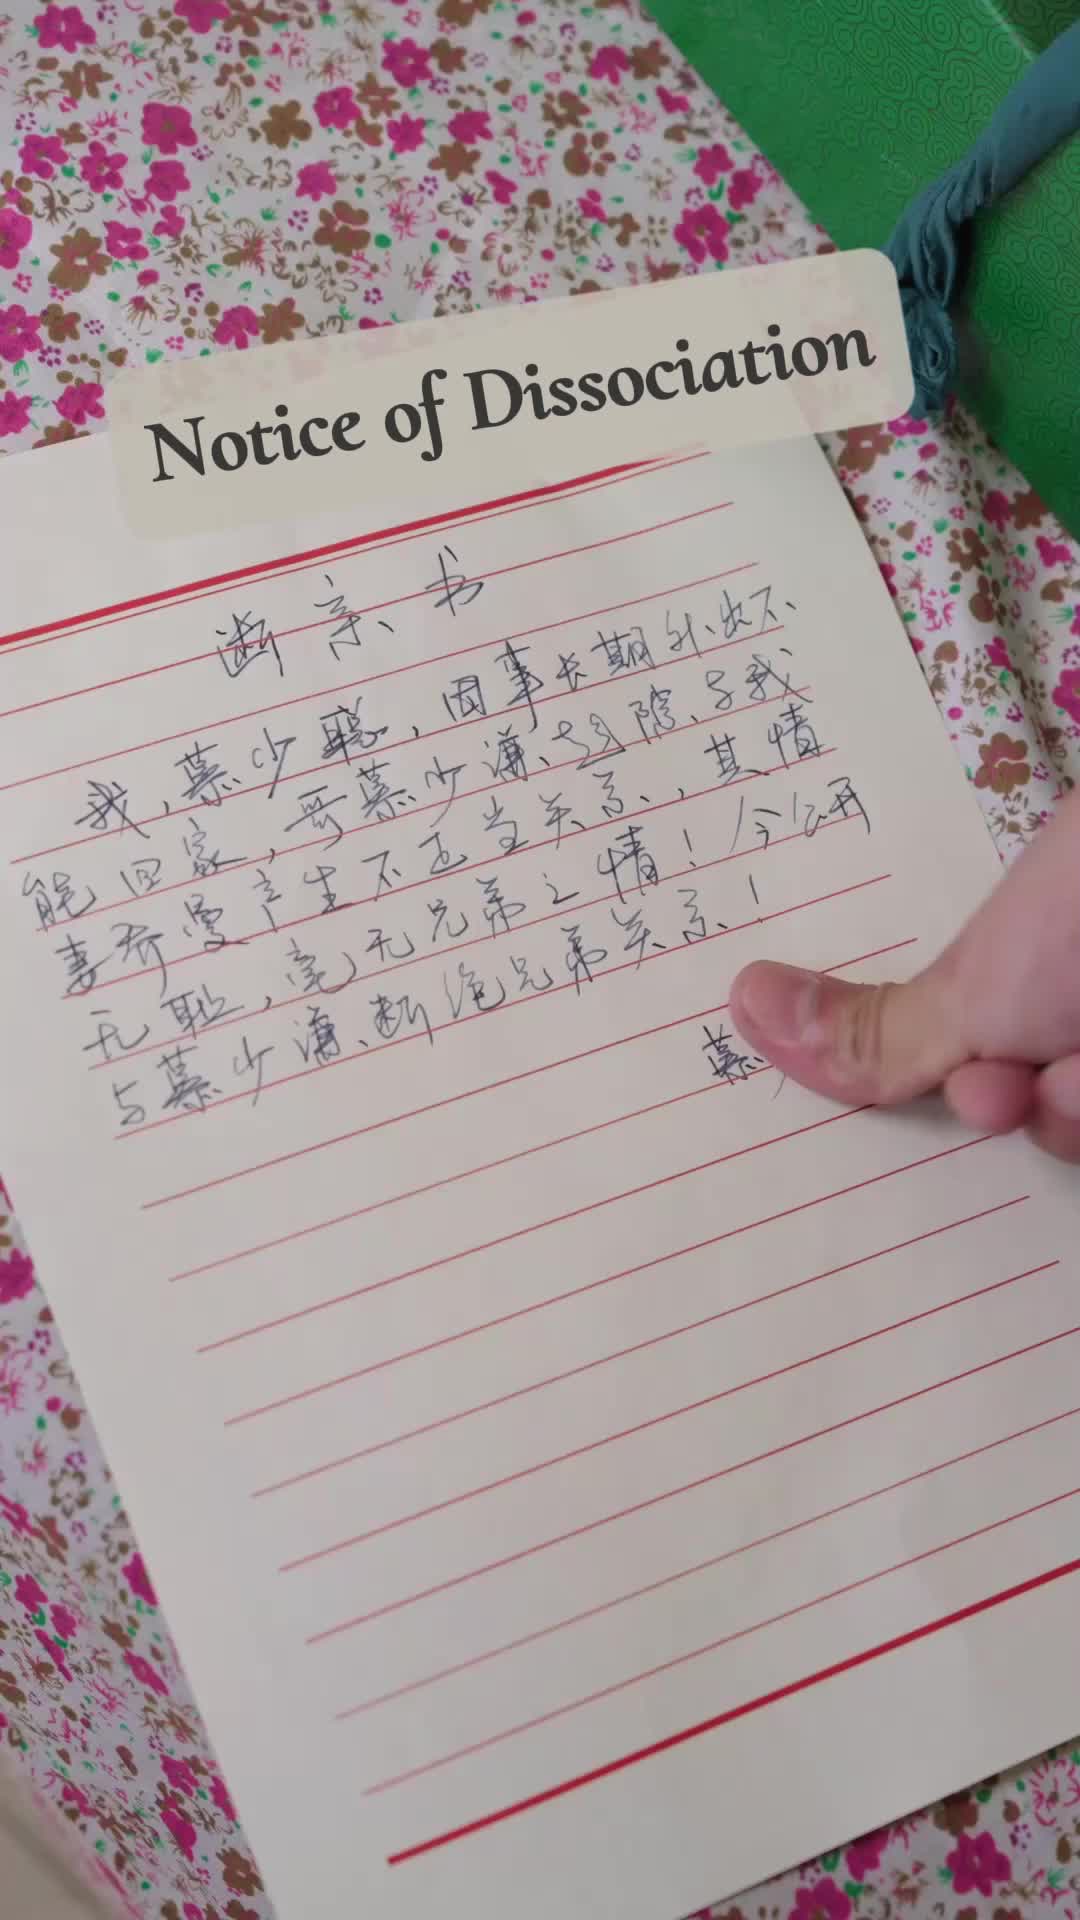 Notice of Dissociation
断亲书
我，慕少聪，因事长期外出不
能回家，哥慕少谦、趁隙、与我
妻乔曼产生不正当关系，其情
无耻，毫无兄弟之情！今公开
与慕少谦、断绝兄弟关系！
慕